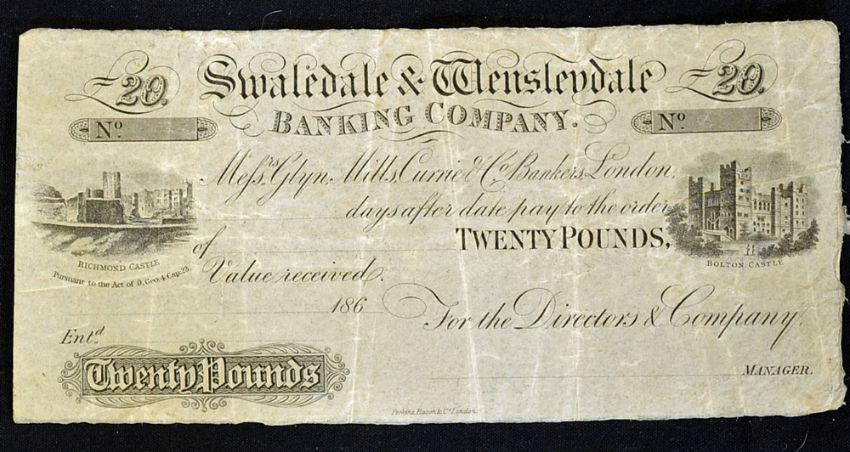 £20. Swaledale & Wensleydale £20.
No BANKING COMPANY. No
Messrs. Glyn, Mills, Currie & Co. Bankers, London.
days after date pay to the order
of TWENTY POUNDS,
RICHMOND CASTLE
BOLTON CASTLE
Pursuant to the Act of 9, Geo. 4, Cap. 23.
Value received.
186
For the Directors & Company.
Entd.
Twenty Pounds
MANAGER.
Perkins, Bacon & Co. London.